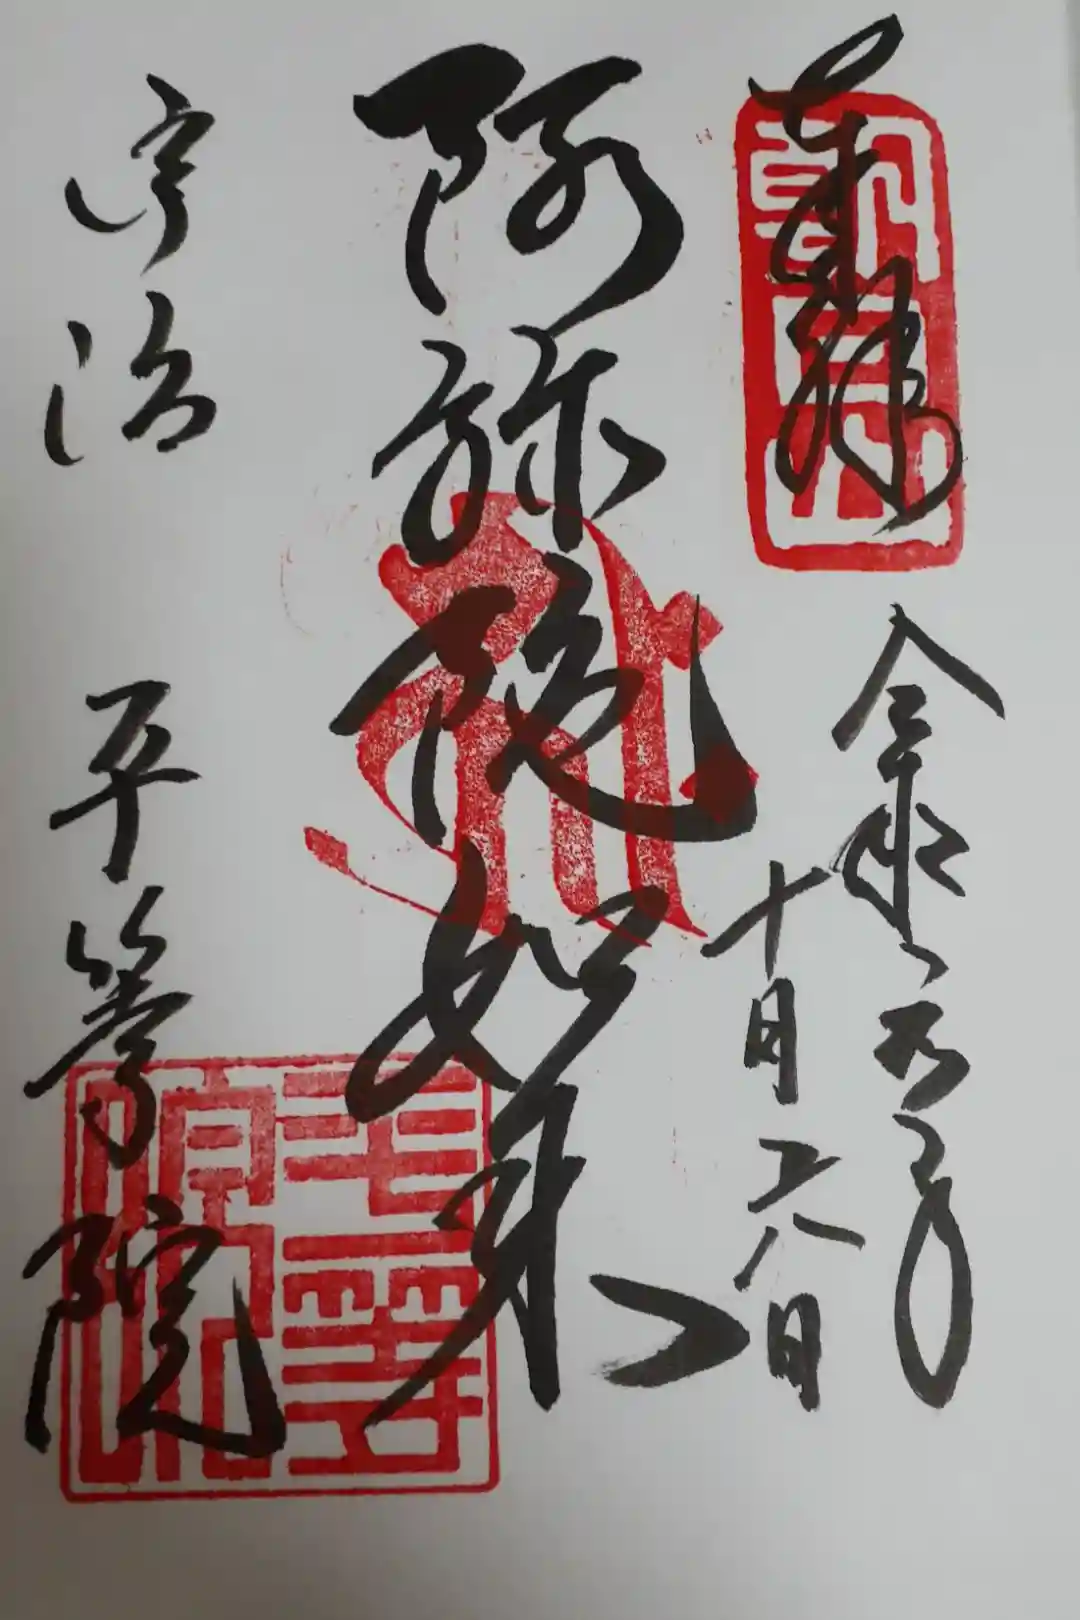 奉拝
令和元年
十月二八日
阿弥陀如来
宇治 平等院
朝日山
平等院